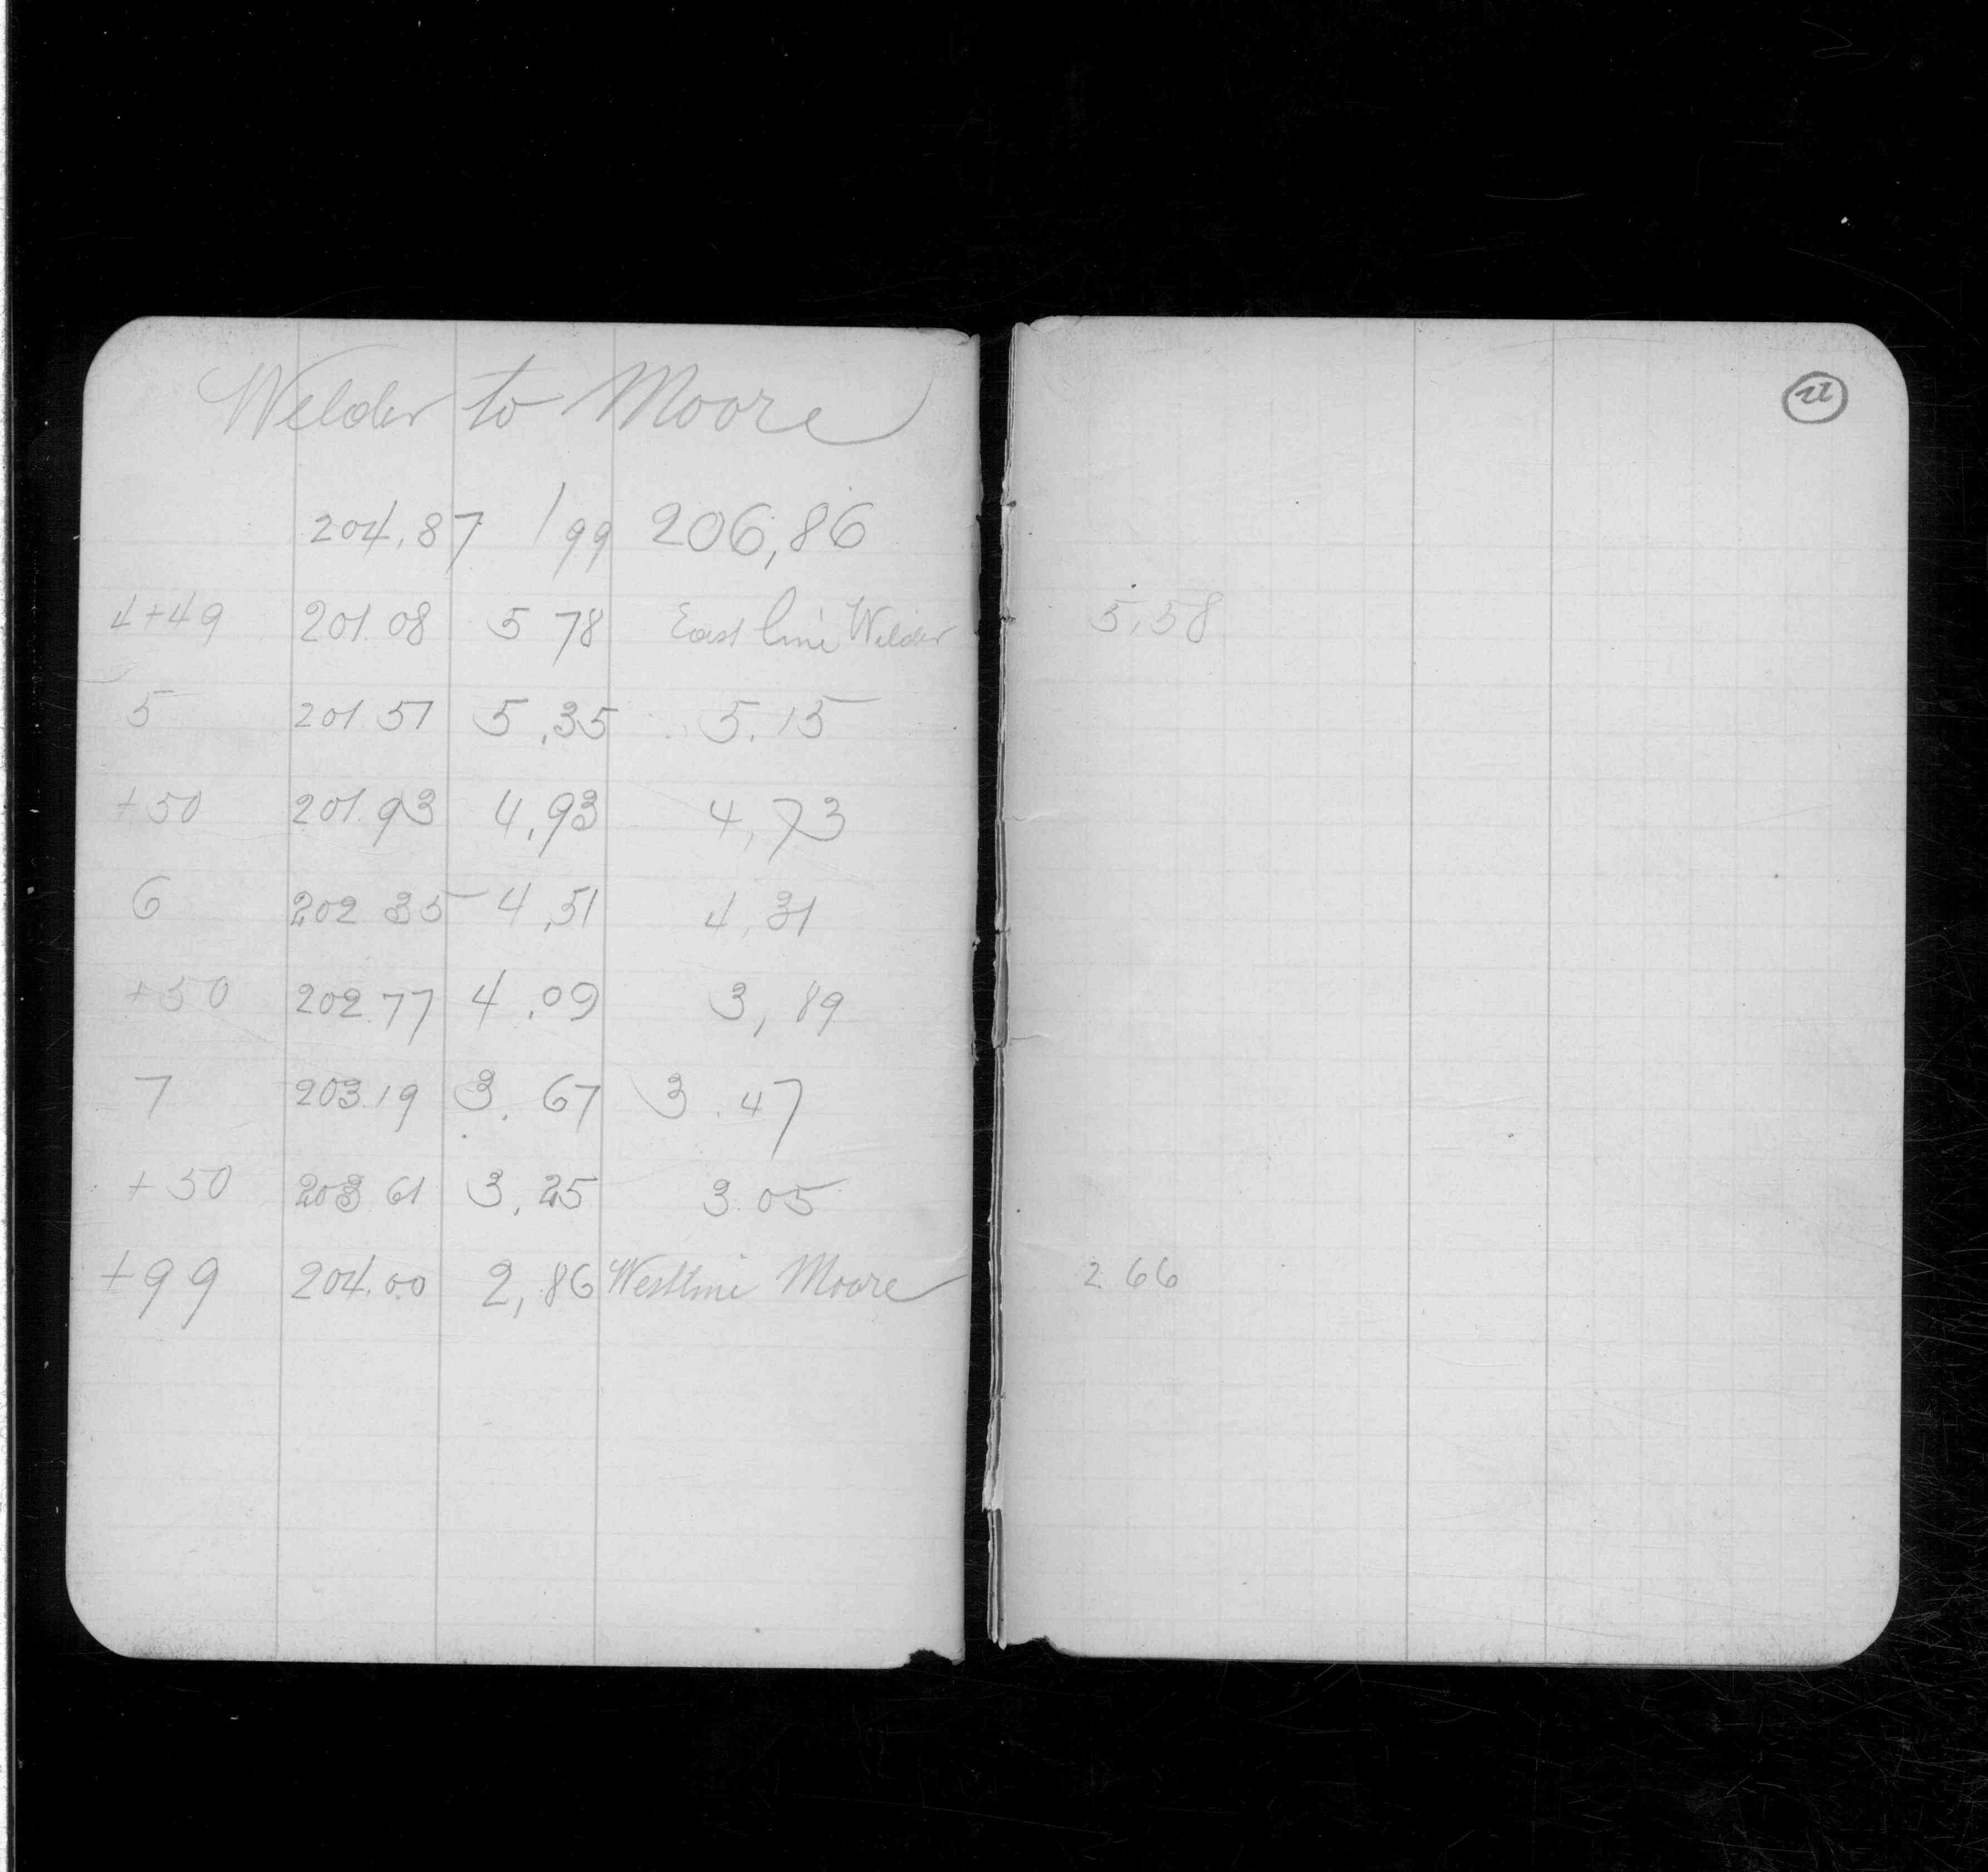 Welder to Moore
204.87 1 99 206,86
4+49 201.08 5 78 East line Welder 5.58
5 201.51 5.35 5.15
+50 201.93 4.93 4,73
6 202.35 4.51 4.31
+50 202.77 4.09 3,89
7 203.19 3.67 3.47
+50 203 61 3.25 3.05
+99 204.00 2,86 West line Moore 2 66